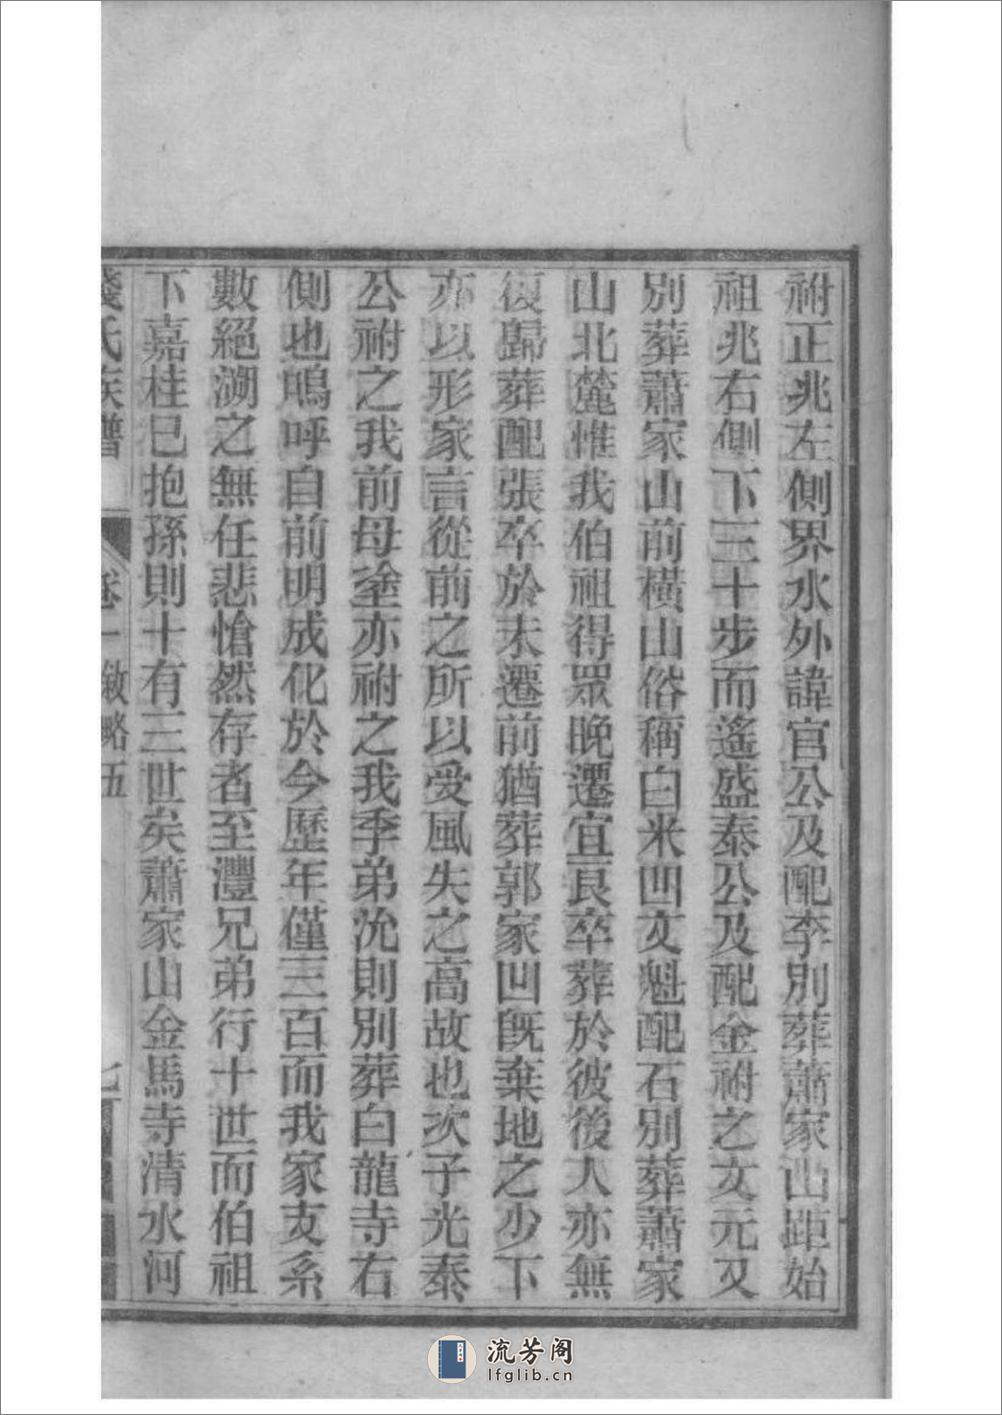 祔正兆左側界水外諱官公及配李別葬蕭家山距始
祖兆右側下三十步而遙盛泰公及配金祔之文元又
別葬蕭家山前橫山俗稱白米凹文魁配石別葬蕭家
山北麓惟我伯祖得眾晚遷宜良卒葬於彼後人亦無
復歸葬配張卒於未遷前猶葬郭家凹旣棄地之少下
亦以形家言從前之所以受風失之高故也次子光泰
公祔之我前母塗亦祔之我季弟沇則別葬白龍寺右
側也嗚呼自前明成化於今歷年僅三百而我家支系
數絕溯之無任悲愴然存者至灃兄弟行十世而伯祖
下嘉桂已抱孫則十有三世矣蕭家山金馬寺清水河
錢氏族譜 卷一敘略五 七
流芳阁
lfglib.cn